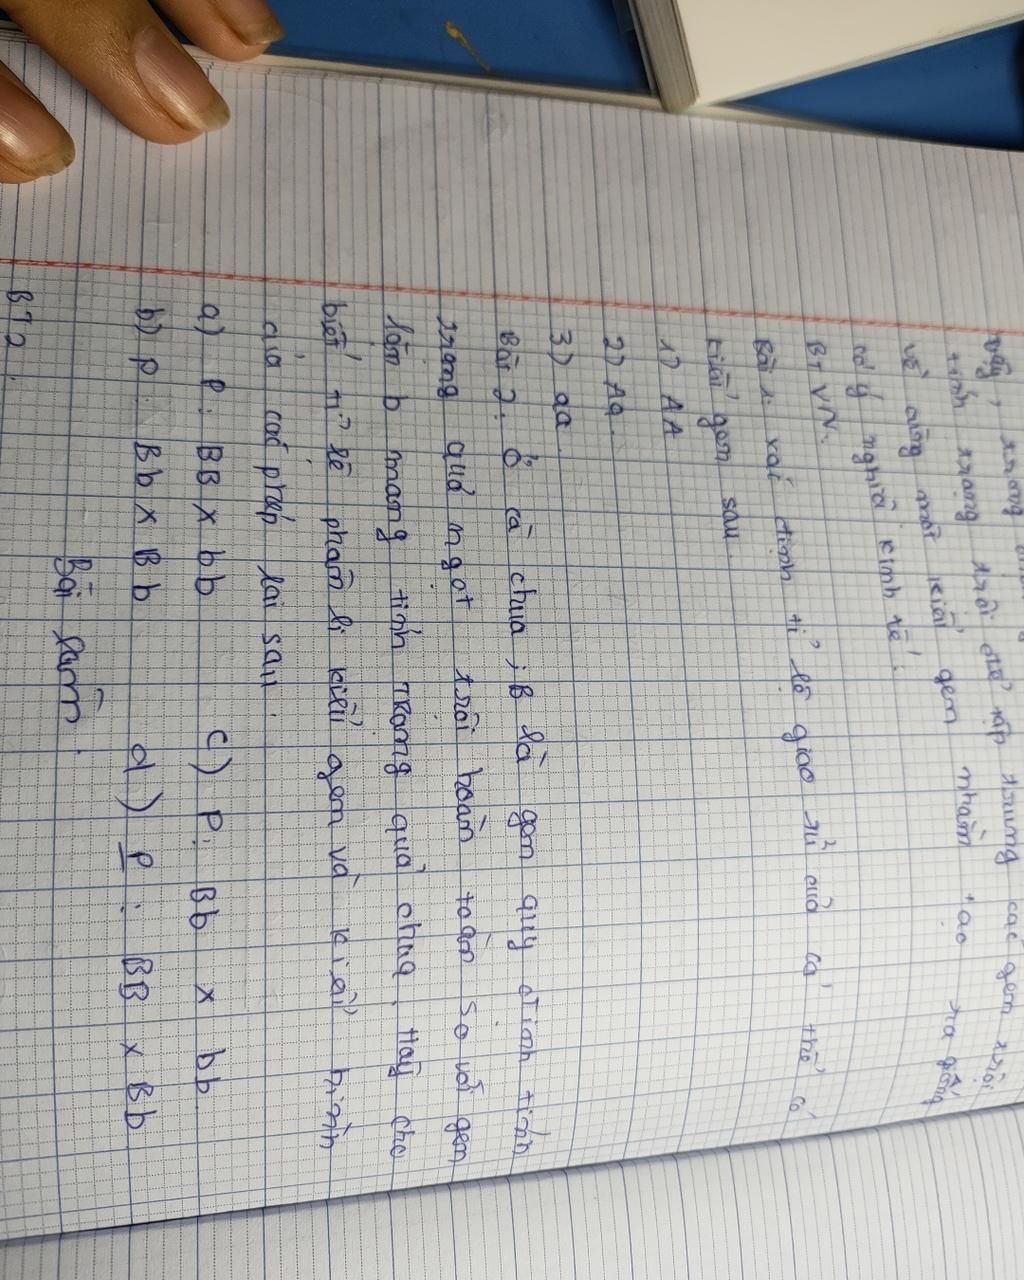 vậy, trong các gen trội
tính trạng trội để tập trung các gen trội
về cùng một kiểu gen nhằm tạo ra giống
có ý nghĩa kinh tế.
BTVN.
Bài 1. xác định tỉ lệ giao tử của cá thể có
kiểu gen sau
1) AA
2) Aa.
3) aa
Bài 2. ở cà chua, B là gen quy định tính
trạng quả ngọt trội hoàn toàn so với gen
lặn b mang tính trạng quả chua. Hãy cho
biết tỉ lệ phân li kiểu gen và kiểu hình
của các phép lai sau.
a) P: BB x bb c) P: Bb x bb
b) P: Bb x Bb d) P: BB x Bb
Bài làm.
BT2.